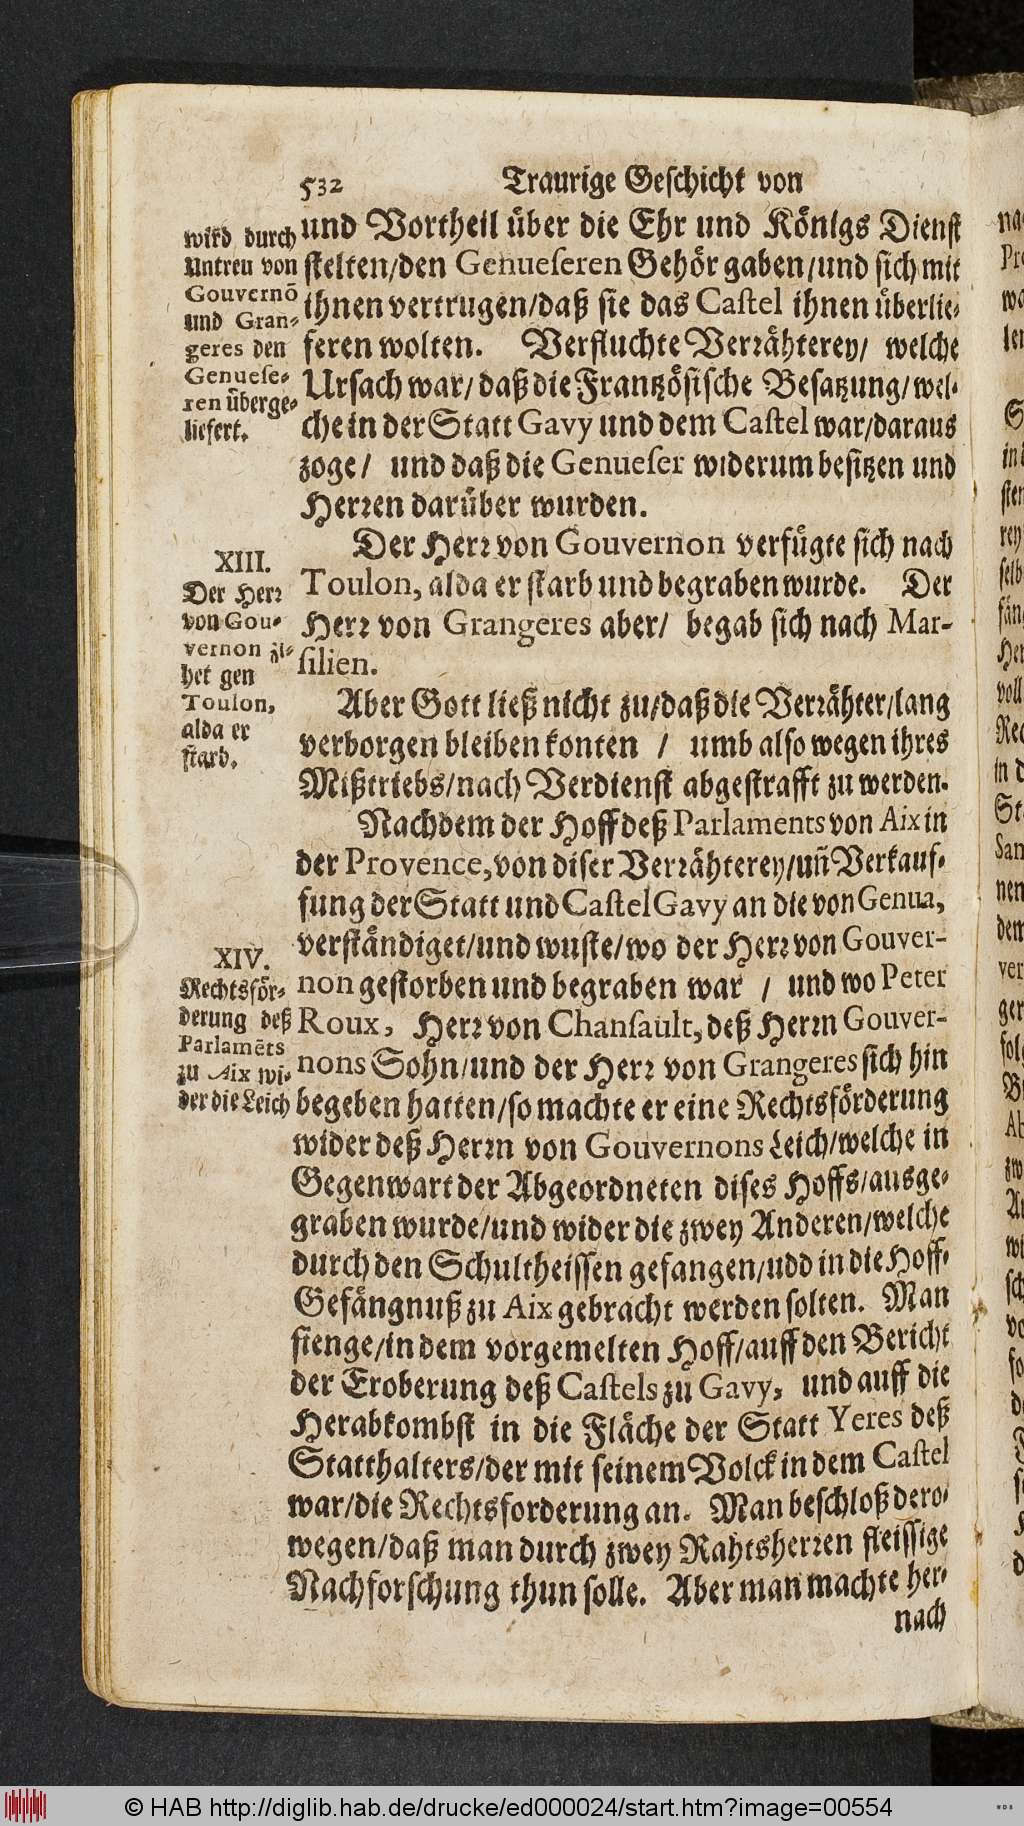 532 Traurige Geschicht von
wird durch
Untreu von
Gouvernō
und Gran-
geres den
Genuese-
ren überge-
liefert.
und Vortheil über die Ehr und Königs Dienst
stelten/den Genueseren Gehör gaben/und sich mit
ihnen vertrugen/daß sie das Castel ihnen überlie-
feren wolten. Verfluchte Verrähterey/ welche
Ursach war/daß die Frantzösische Besatzung/wel-
che in der Statt Gavy und dem Castel war/daraus
zoge/ und daß die Genueser widerum besitzen und
Herren darüber wurden.
XIII.
Der Herr
von Gou-
vernon zi-
het gen
Toulon,
alda er
starb.
Der Herr von Gouvernon verfügte sich nach
Toulon, alda er starb und begraben wurde. Der
Herr von Grangeres aber/ begab sich nach Mar-
silien.
Aber Gott ließ nicht zu/daß die Verrähter/lang
verborgen bleiben konten / umb also wegen ihres
Mißtriebs/nach Verdienst abgestrafft zu werden.
Nachdem der Hoff deß Parlaments von Aix in
der Provence, von diser Verrähterey/uñ Verkauf-
fung der Statt und Castel Gavy an die von Genua,
verständiget/und wuste/wo der Herr von Gouver-
non gestorben und begraben war / und wo Peter
Roux, Herr von Chansault, deß Herrn Gouver-
nons Sohn/und der Herr von Grangeres sich hin
begeben hatten/so machte er eine Rechtsförderung
XIV.
Rechtsför-
derung deß
Parlamēts
zu Aix wi-
der die Leich
wider deß Herrn von Gouvernons Leich/welche in
Gegenwart der Abgeordneten dises Hoffs/ausge-
graben wurde/und wider die zwey Anderen/welche
durch den Schultheissen gefangen/udd in die Hoff-
Gefängnuß zu Aix gebracht werden solten. Man
fienge/in dem vorgemelten Hoff/auff den Bericht
der Eroberung deß Castels zu Gavy, und auff die
Herabkombst in die Fläche der Statt Yeres deß
Statthalters/der mit seinem Volck in dem Castel
war/die Rechtsforderung an. Man beschloß dero-
wegen/daß man durch zwey Rahtsherren fleissige
Nachforschung thun solle. Aber man machte her-
nach
© HAB http://diglib.hab.de/drucke/ed000024/start.htm?image=00554